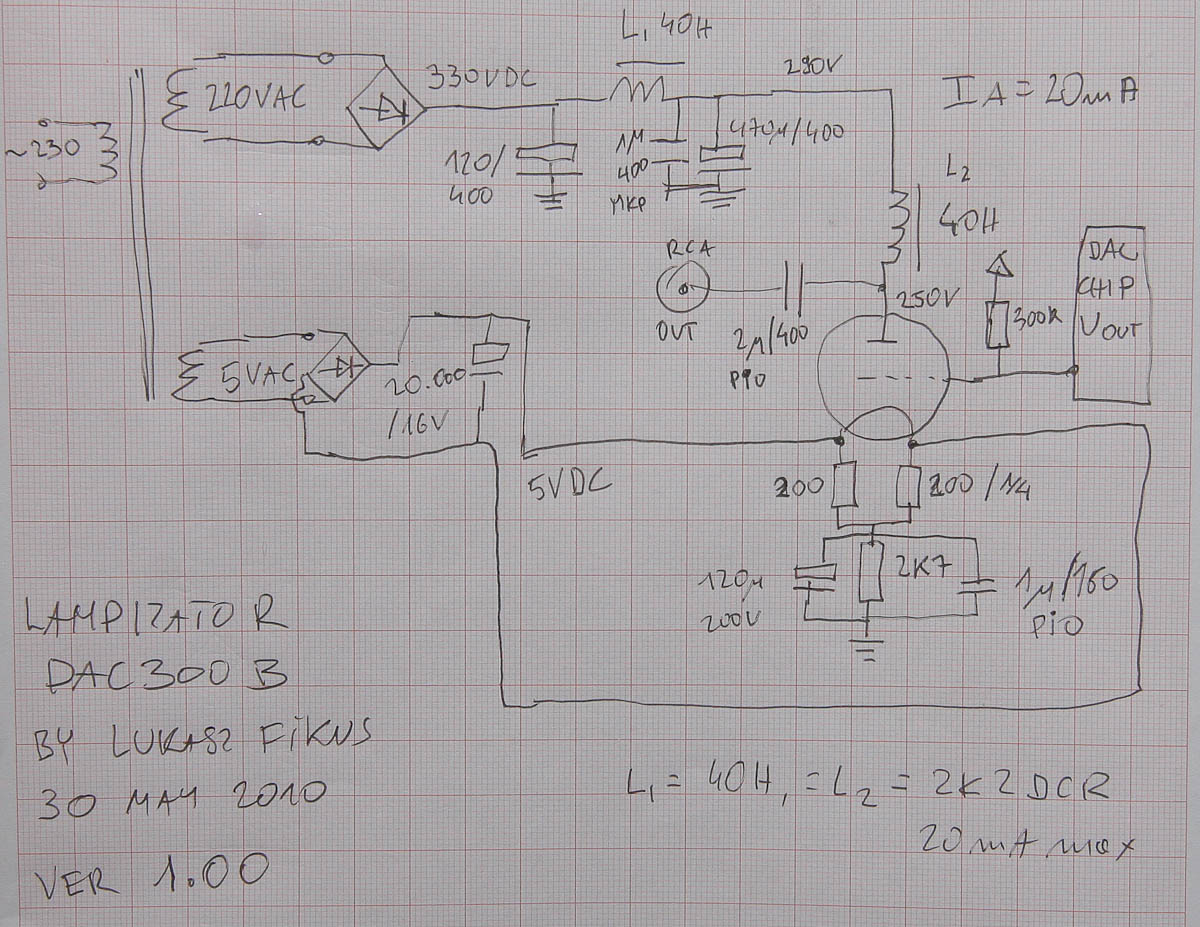 L, 40H
220VAC
330VDC
290V
IA = 20mA
~230
120/
400
1µ
400
MKP
470µ/400
L2
40H
RCA
OUT
2µ/400
PIO
250V
300R
DAC
CHIP
VOUT
5VAC
20.000
/16V
5VDC
200
200 / 1/4
120µ
200V
2K7
1µ/160
PiO
LAMPIZATOR
DAC 300 B
BY LUKASZ FiKUS
30 MAY 2010
VER 1.00
L1 = 40H, = L2 = 2K2 DCR
20mA max